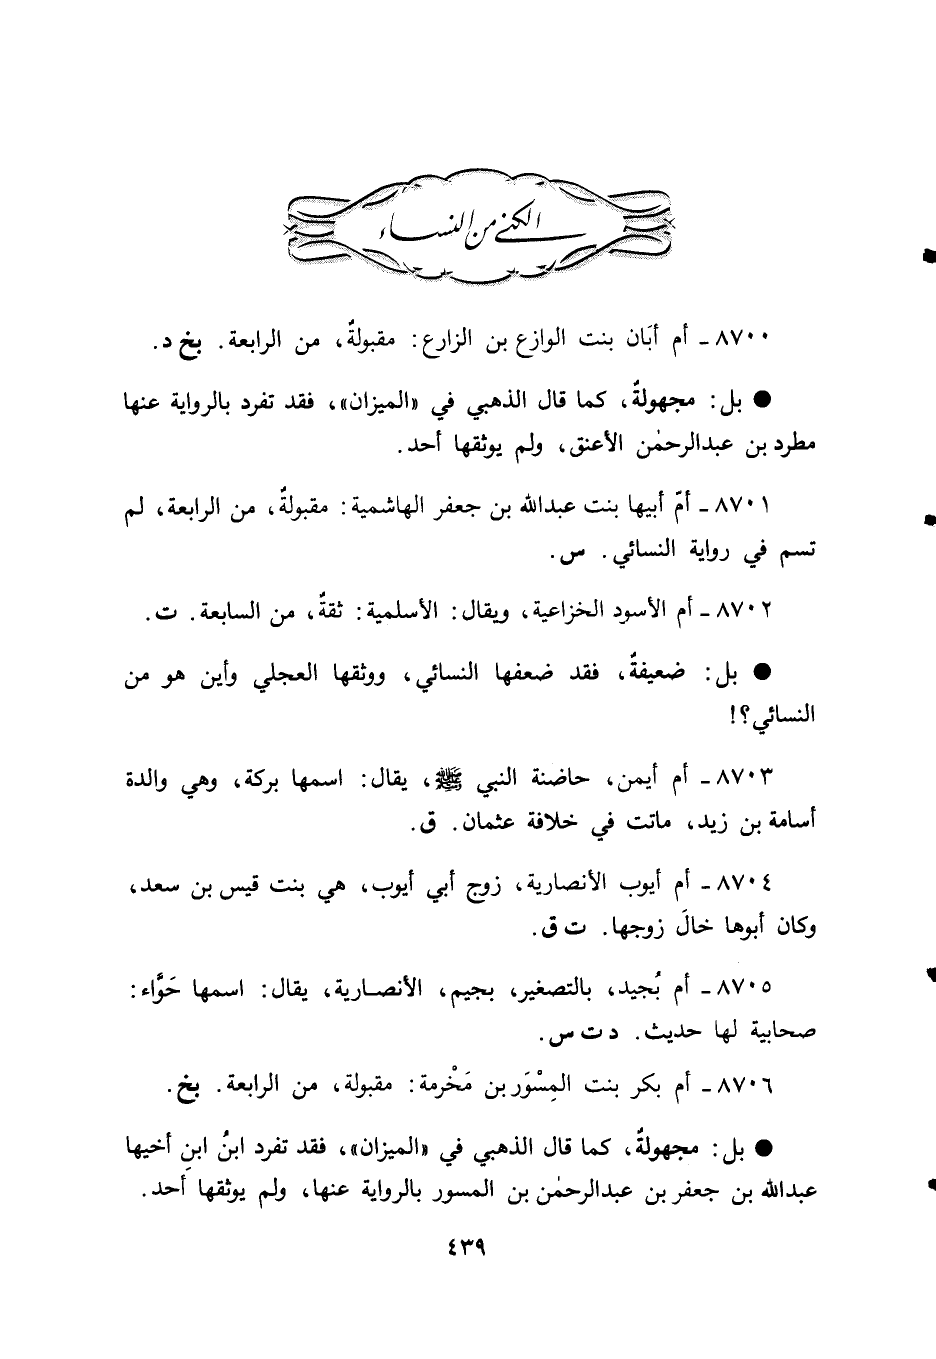 الكنى من النساء
٨٧٠٠ ـ أم أبَان بنت الوازع بن الزارع: مقبولةٌ، من الرابعة. بخ د.
● بل: مجهولةٌ، كما قال الذهبي في «الميزان»، فقد تفرد بالرواية عنها
مطرد بن عبدالرحمٰن الأعنق، ولم يوثقها أحد.
٨٧٠١ ـ أمّ أبيها بنت عبدالله بن جعفر الهاشمية: مقبولةٌ، من الرابعة، لم
تسم في رواية النسائي. س.
٨٧٠٢ ـ أم الأسود الخزاعية، ويقال: الأسلمية: ثقةٌ، من السابعة. ت.
● بل: ضعيفةٌ، فقد ضعفها النسائي، ووثقها العجلي وأين هو من
النسائي؟!
٨٧٠٣ ـ أم أيمن، حاضنة النبي ﷺ، يقال: اسمها بركة، وهي والدة
أسامة بن زيد، ماتت في خلافة عثمان. ق.
٨٧٠٤ ـ أم أيوب الأنصارية، زوج أبي أيوب، هي بنت قيس بن سعد،
وكان أبوها خالَ زوجها. ت ق.
٨٧٠٥ ـ أم بُجيد، بالتصغير، بجيم، الأنصـارية، يقال: اسمها حَوَّاء:
صحابية لها حديث. د ت س.
٨٧٠٦ ـ أم بكر بنت المِسْوَر بن مَخْرمة: مقبولة، من الرابعة. بخ.
● بل: مجهولةٌ، كما قال الذهبي في «الميزان»، فقد تفرد ابنُ ابنِ أخيها
عبدالله بن جعفر بن عبدالرحمٰن بن المسور بالرواية عنها، ولم يوثقها أحد.
٤٣٩